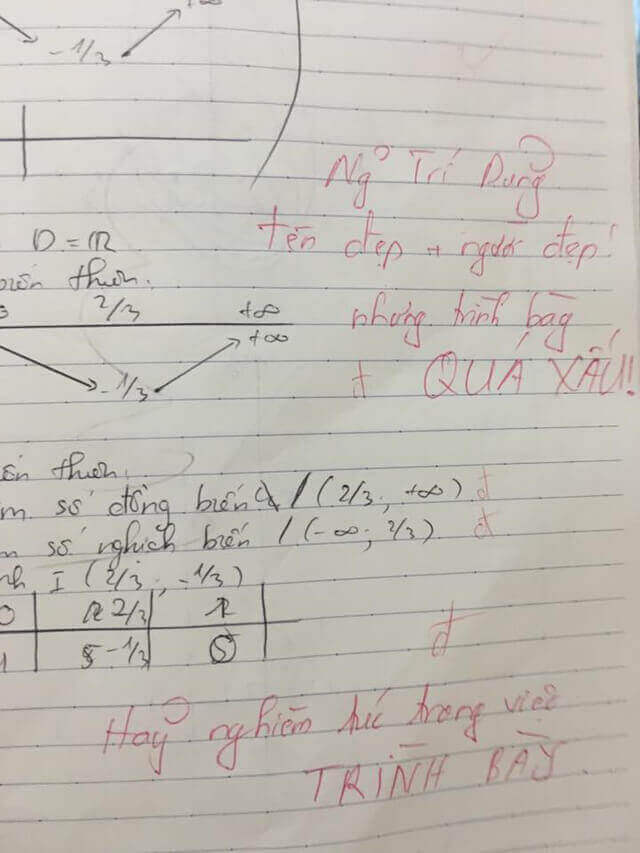 +∞
-1/3
Ngô Trí Dũng
D = R
tên đẹp + người đẹp!
biến thiên.
2/3 +∞
nhưng trình bày
+∞
-1/3
đ QUÁ XẤU!
biến thiên.
số đồng biến / (2/3; +∞) đ
số nghịch biến / (-∞; 2/3) đ
I (2/3; -1/3)
2/3 1
-1/3 đ
Hãy nghiêm túc trong việc
TRÌNH BÀY